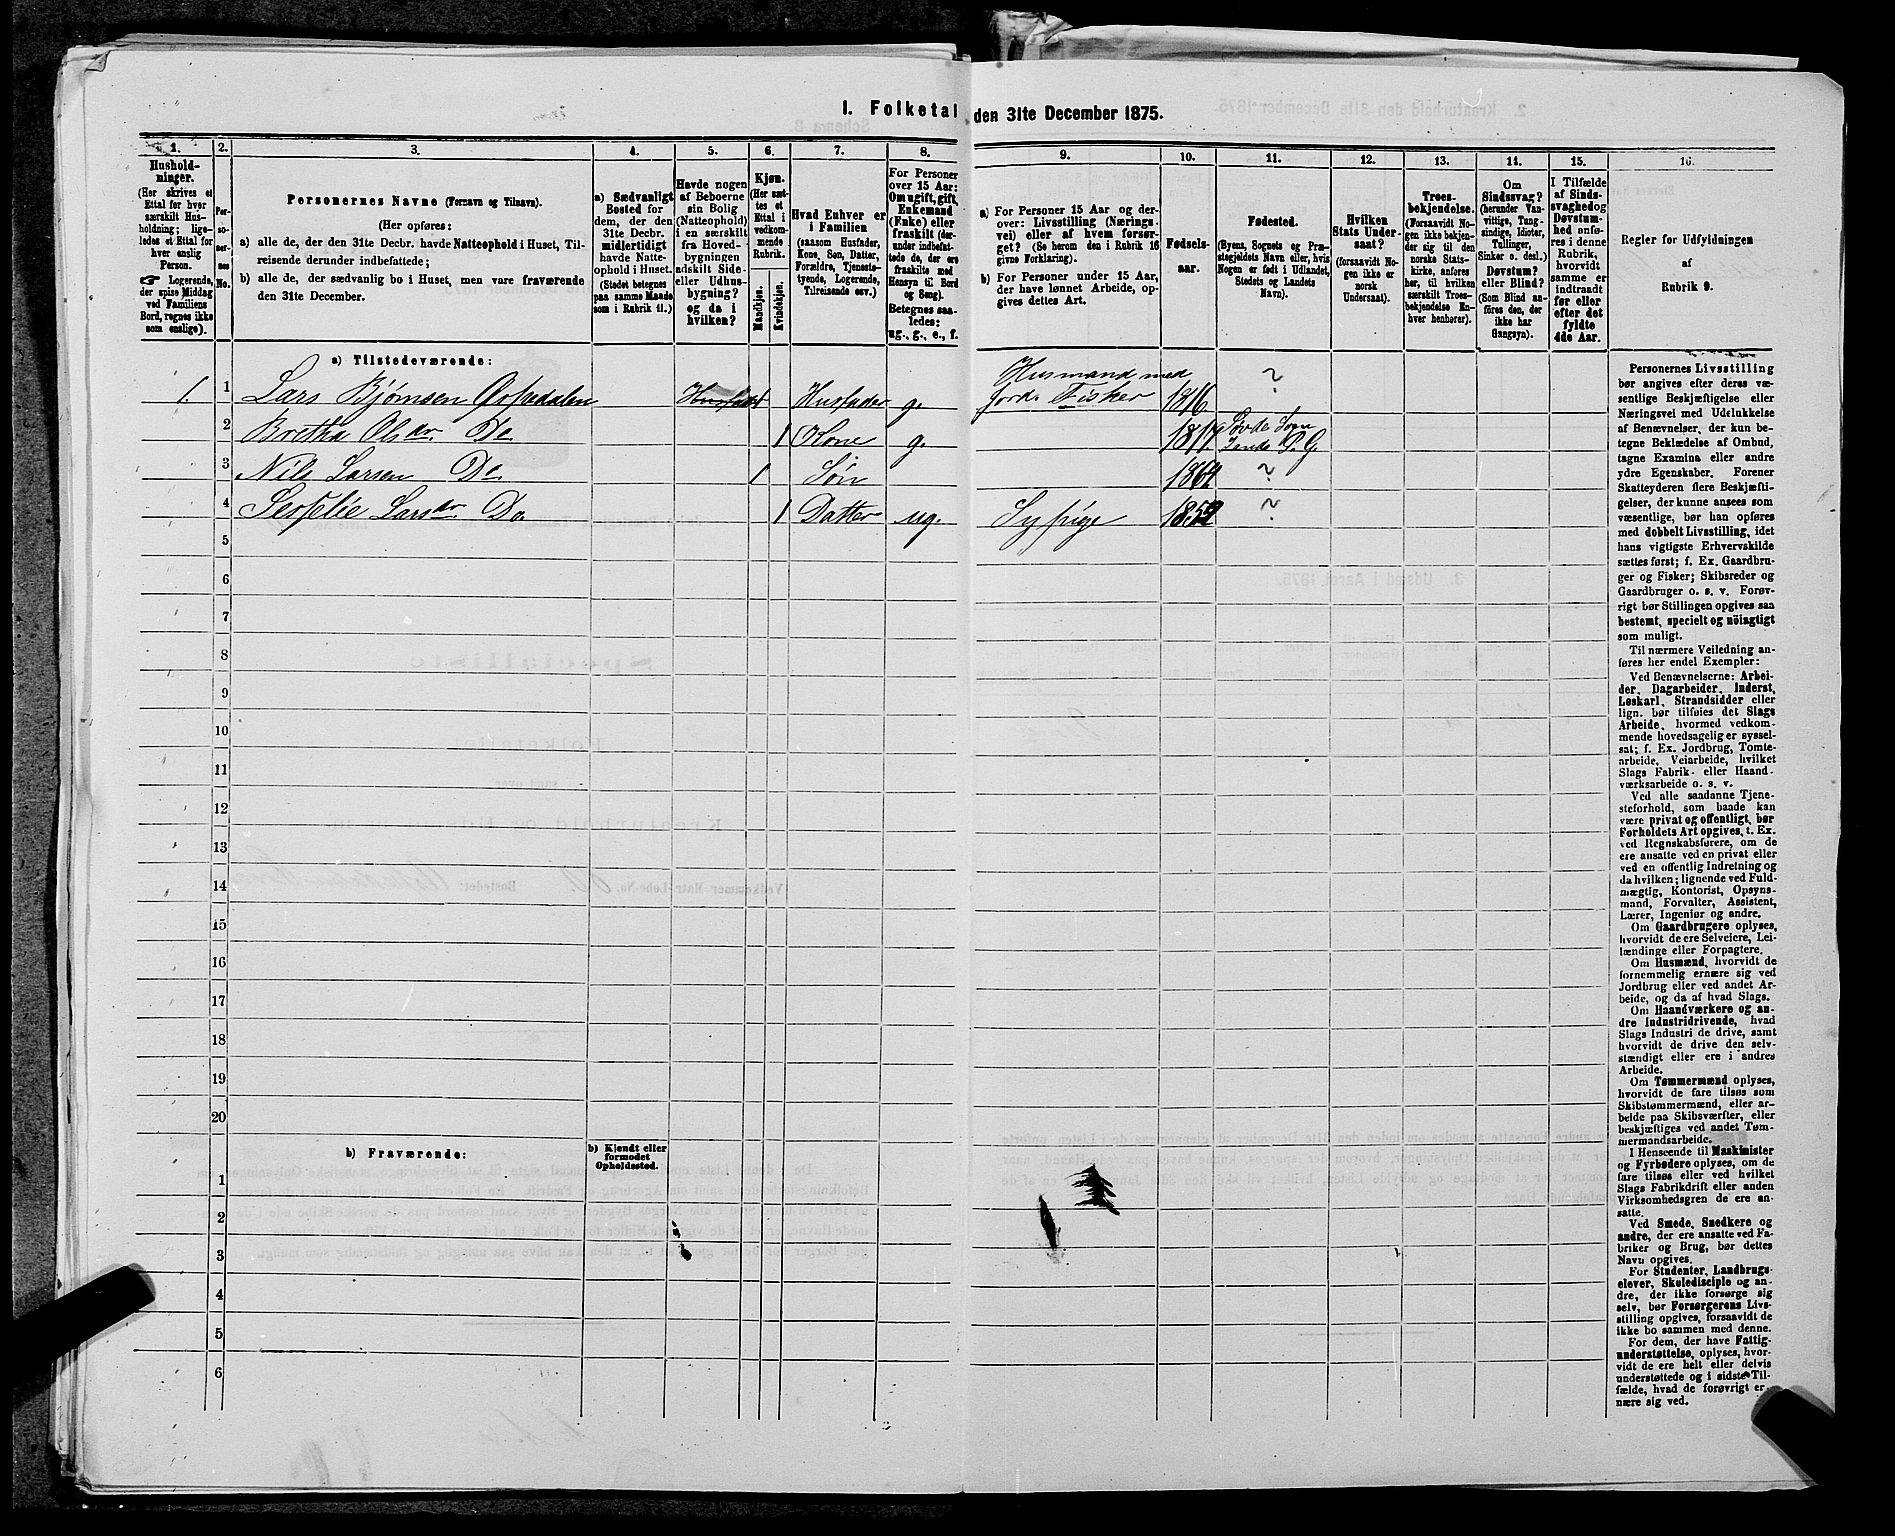 1. Folketal den 31te December 1875.
1.
Hushold-
ninger.
(Her skrives et
Ettal for hver
særskilt Hus-
holdning; lige-
ledes et Ettal for
hver enslig
Person.
Logerende,
der spise Middag
ved Familiens
Bord, regnes ikke
som enslige).
2.
Per-
so-
ner-
nes
No.
3.
Personernes Navne (Fornavn og Tilnavn).
(Her opføres:
a) alle de, der den 31te Decbr. havde Natteophold i Huset, Til-
reisende derunder indbefattede;
b) alle de, der sædvanlig bo i Huset, men vare fraværende
den 31te December.
4.
a) Sædvanligt
Bosted for
dem, der den
31te Decbr.
midlertidigt
havde Natte-
ophold i Huset.
(Stedet betegnes
paa samme Maade
som i Rubrik 11.)
5.
Havde nogen
af Beboerne
sin Bolig
(Natteophold)
i en særskilt
fra Hoved-
bygningen
adskilt Side-
eller Udhus-
bygning?
og da i
hvilken?
6.
Kjøn.
(Her sæt-
tes et
Ettal i
vedkom-
mende
Rubrik.
Mandkjøn.
Kvindekjøn.
7.
Hvad Enhver er
i Familien
(saasom Husfader,
Kone, Søn, Datter,
Forældre, Tjeneste-
tyende, Logerende,
Tilreisende osv.)
8.
For Personer
over 15 Aar:
Om ugift, gift,
Enkemand
(Enke) eller
fraskilt (der-
under indbefat-
tede de, der ere
fraskilte med
Hensyn til Bord
og Seng).
Betegnes saa-
ledes:
ug., g., e., f.
9.
a) For Personer 15 Aar og der-
over: Livsstilling (Nærings-
vei) eller af hvem forsør-
get? (Se herom den i Rubrik 16
givne Forklaring).
b) For Personer under 15 Aar,
der have lønnet Arbeide, op-
gives dettes Art.
10.
Fødsels-
aar.
11.
Fødested.
(Byens, Sognets og Præ-
stegjeldets Navn eller, hvis
Nogen er født i Udlandet,
Stedets og Landets
Navn).
12.
Hvilken
Stats Under-
saat?
(forsaavidt No-
gen ikke er
norsk
Undersaat).
13.
Troes-
bekjendelse.
(Forsaavidt No-
gen ikke bekjen-
der sig til den
norske Stats-
kirke, anføres
her, til hvilken
særskilt Troes-
bekjendelse En-
hver henhører).
14.
Om
Sindssvag?
(herunder Van-
vittige, Tung-
sindige, Idioter,
Tullinger,
Sinker o. desl.)
Døvstum?
eller Blind?
(Som Blind an-
føres den, der
ikke har
Gangsyn).
15.
I Tilfælde
af Sinds-
svaghed og
Døvstum-
hed anfø-
res i denne
Rubrik,
hvorvidt
samme er
indtraadt
før eller
efter det
fyldte
4de Aar.
16.
Regler for Udfyldningen
af
Rubrik 9.
a) Tilstedeværende:
1. 1 Lars Bjørnsen Ospedalen 1 Husfader g. Husmand med Jord. Fisker 1816 ?
2 Bertha Olsdr. Do 1 Kone g. 1817 Søvde Sogn Sands P.G.
3 Nils Larsen Do 1 Søn 1864 ?
4 Serselie Larsdr. Do. 1 Datter ug. Sypige 1852 ?
5
6
7
8
9
10
11
12
13
14
15
16
17
18
19
20
b) Fraværende:
b) Kjendt eller
formodet
Opholdssted.
1
2
3
4
5
6
Personernes Livsstilling
bør angives efter deres væ-
sentlige Beskjæftigelse eller
Næringsvei med Udelukkelse
af Benævnelser, der kun be-
tegne Beklædelse af Ombud,
tagne Examina eller andre
ydre Egenskaber. Forener
Skatteyderen flere Beskjæfti-
gelser, der kunne ansees som
væsentlige, bør han opføres
med dobbelt Livsstilling, idet
hans vigtigste Erhvervskilde
sættes først; f. Ex. Gaardbru-
ger og Fisker; Skibsreder og
Gaardbruger o. s. v. Forøv-
rigt bør Stillingen opgives saa
bestemt, specielt og nöiagtigt
som muligt.
Til nærmere Veiledning an-
føres her endel Exempler:
Ved Benævnelserne: Arbei-
der, Dagarbeider, Inderst,
Løskarl, Strandsidder eller
lign. bør tilføies det Slags
Arbeide, hvormed vedkom-
mende hovedsagelig er syssel-
sat; f. Ex. Jordbrug, Tomte-
arbeide, Veiarbeide, hvilket
Slags Fabrik- eller Haand-
værksarbeide o. s. v.
Ved alle saadanne Tjene-
steforhold, som baade kan
være privat og offentligt, bør
Forholdets Art opgives, t. Ex.
ved Regnskabsførere, om de
ere ansatte ved en privat eller
ved en offentlig Indretning og
da hvilken; lignende ved Fuld-
mægtig, Kontorist, Opsyns-
mand, Forvalter, Assistent,
Lærer, Ingeniør og andre.
Om Gaardbrugere oplyses,
hvorvidt de ere Selveiere, Lei-
lændinge eller Forpagtere.
Om Husmænd, hvorvidt de
fornemmelig ernære sig ved
Jordbrug eller ved andet Ar-
beide, og da af hvad Slags.
Om Haandværkere og an-
dre Industridrivende, hvad
Slags Industri de drive, samt
hvorvidt de drive den selv-
stændigt eller ere i andres
Arbeide.
Om Tømmermænd oplyses,
hvorvidt de fare tilsøs som
Skibstømmermænd, eller ar-
beide paa Skibsværfter, eller
beskjæftiges ved andet Tøm-
mermandsarbeide.
I Henseende til Maskinister
og Fyrbødere oplyses, om de
fare tilsøs eller ved hvilket
Slags Fabrikdrift eller anden
Virksomhedsgren de ere an-
satte.
Ved Smede, Snedkere og
andre, der ere ansatte ved Fa-
briker og Brug, bør dettes
Navn opgives.
For Studenter, Landbrugs-
elever, Skoledisciple og an-
dre, der ikke forsørge sig
selv, bør Forsørgerens Livs-
stilling opgives, forsaavidt de
ikke bo sammen med denne.
For dem, der have Fattig-
understøttelse, oplyses, hvor-
vidt de ere helt eller delvis
understøttede og i sidste Til-
fælde, hvad de forøvrigt er-
nære sig ved.